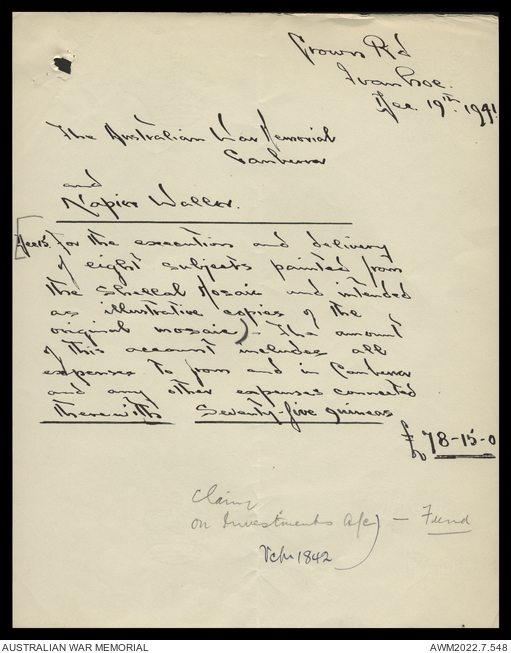 Crown Rd
Ivanhoe.
Dec 19th 1941
The Australian War Memorial
Canberra
and
Napier Waller.
For the execution and delivery
of eight subjects painted from
the Shellal Mosaic and intended
as illustrative copies of the
original mosaic) - The amount
of this account includes all
expenses to from and in Canberra
and any other expenses connected
therewith Seventy-five guineas
£78-15-0
Claim
on Investments A/c) - Fund
Vchr 1842
AUSTRALIAN WAR MEMORIAL
AWM2022.7.548